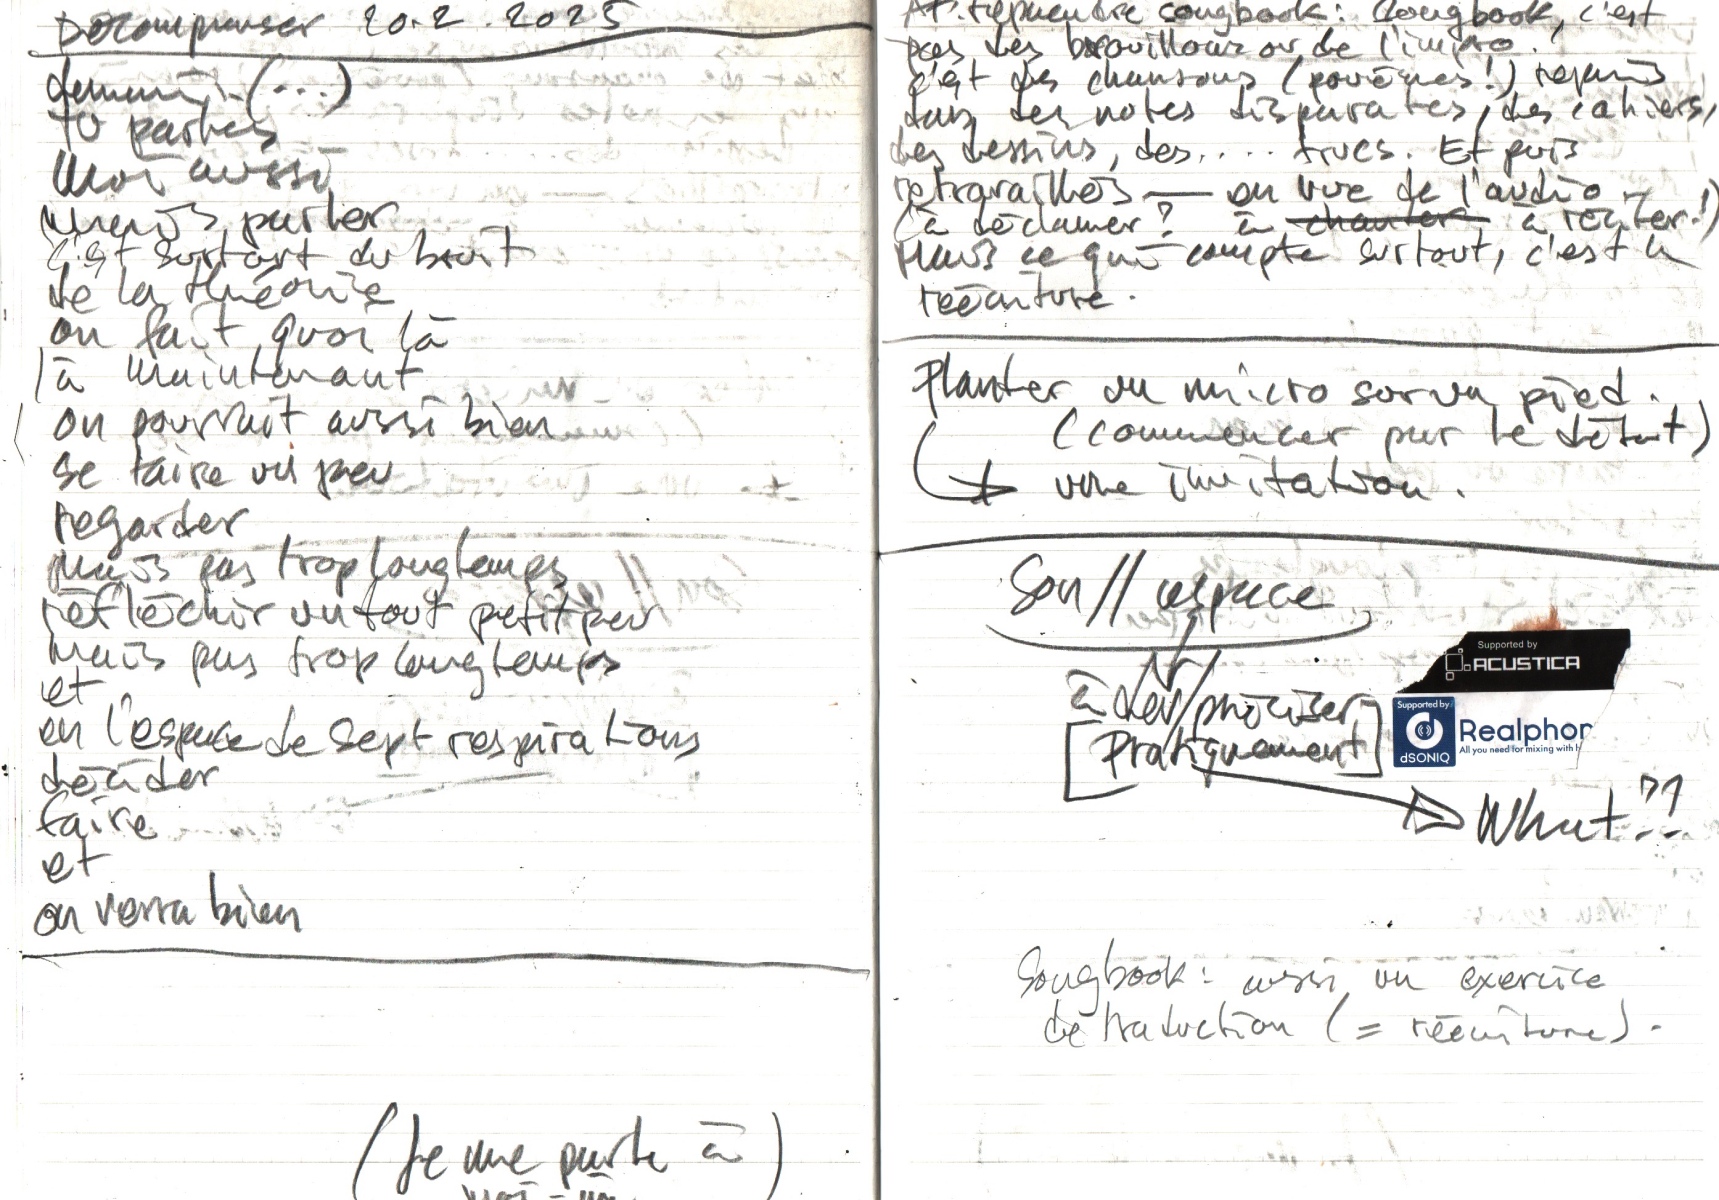 Décompenser 20.2.2025
demain, (...)
tu parles
moi aussi
mais parler
c'est surtout du bruit
de la théorie
on fait quoi là
là maintenant
on pourrait aussi bien
se taire un peu
regarder
mais pas trop longtemps
réfléchir un tout petit peu
mais pas trop longtemps
et
en l'espace de sept respirations
décider
faire
et
on verra bien
(Je me parle à)
moi-m
songbook: Songbook, c'est
pas des brouillons ou de l'impro.
c'est des chansons (poèmes!) repris
dans des notes disparates, des cahiers,
des dessins, des.... trucs. Et puis
retravaillés — en vue de l'audio -
(à déclamer? à chanter à réciter!)
Mais ce qui compte surtout, c'est la
réécriture.
Planter un micro sur un pied.
(commencer par le début)
une imitation.
Son // espace
à dev/préciser
[Pratiquement]
What??
Supported by
ACUSTICA
Supported by
dSONIQ
Realphon
All you need for mixing with h
Songbook: aussi un exercice
de traduction (= réécriture).